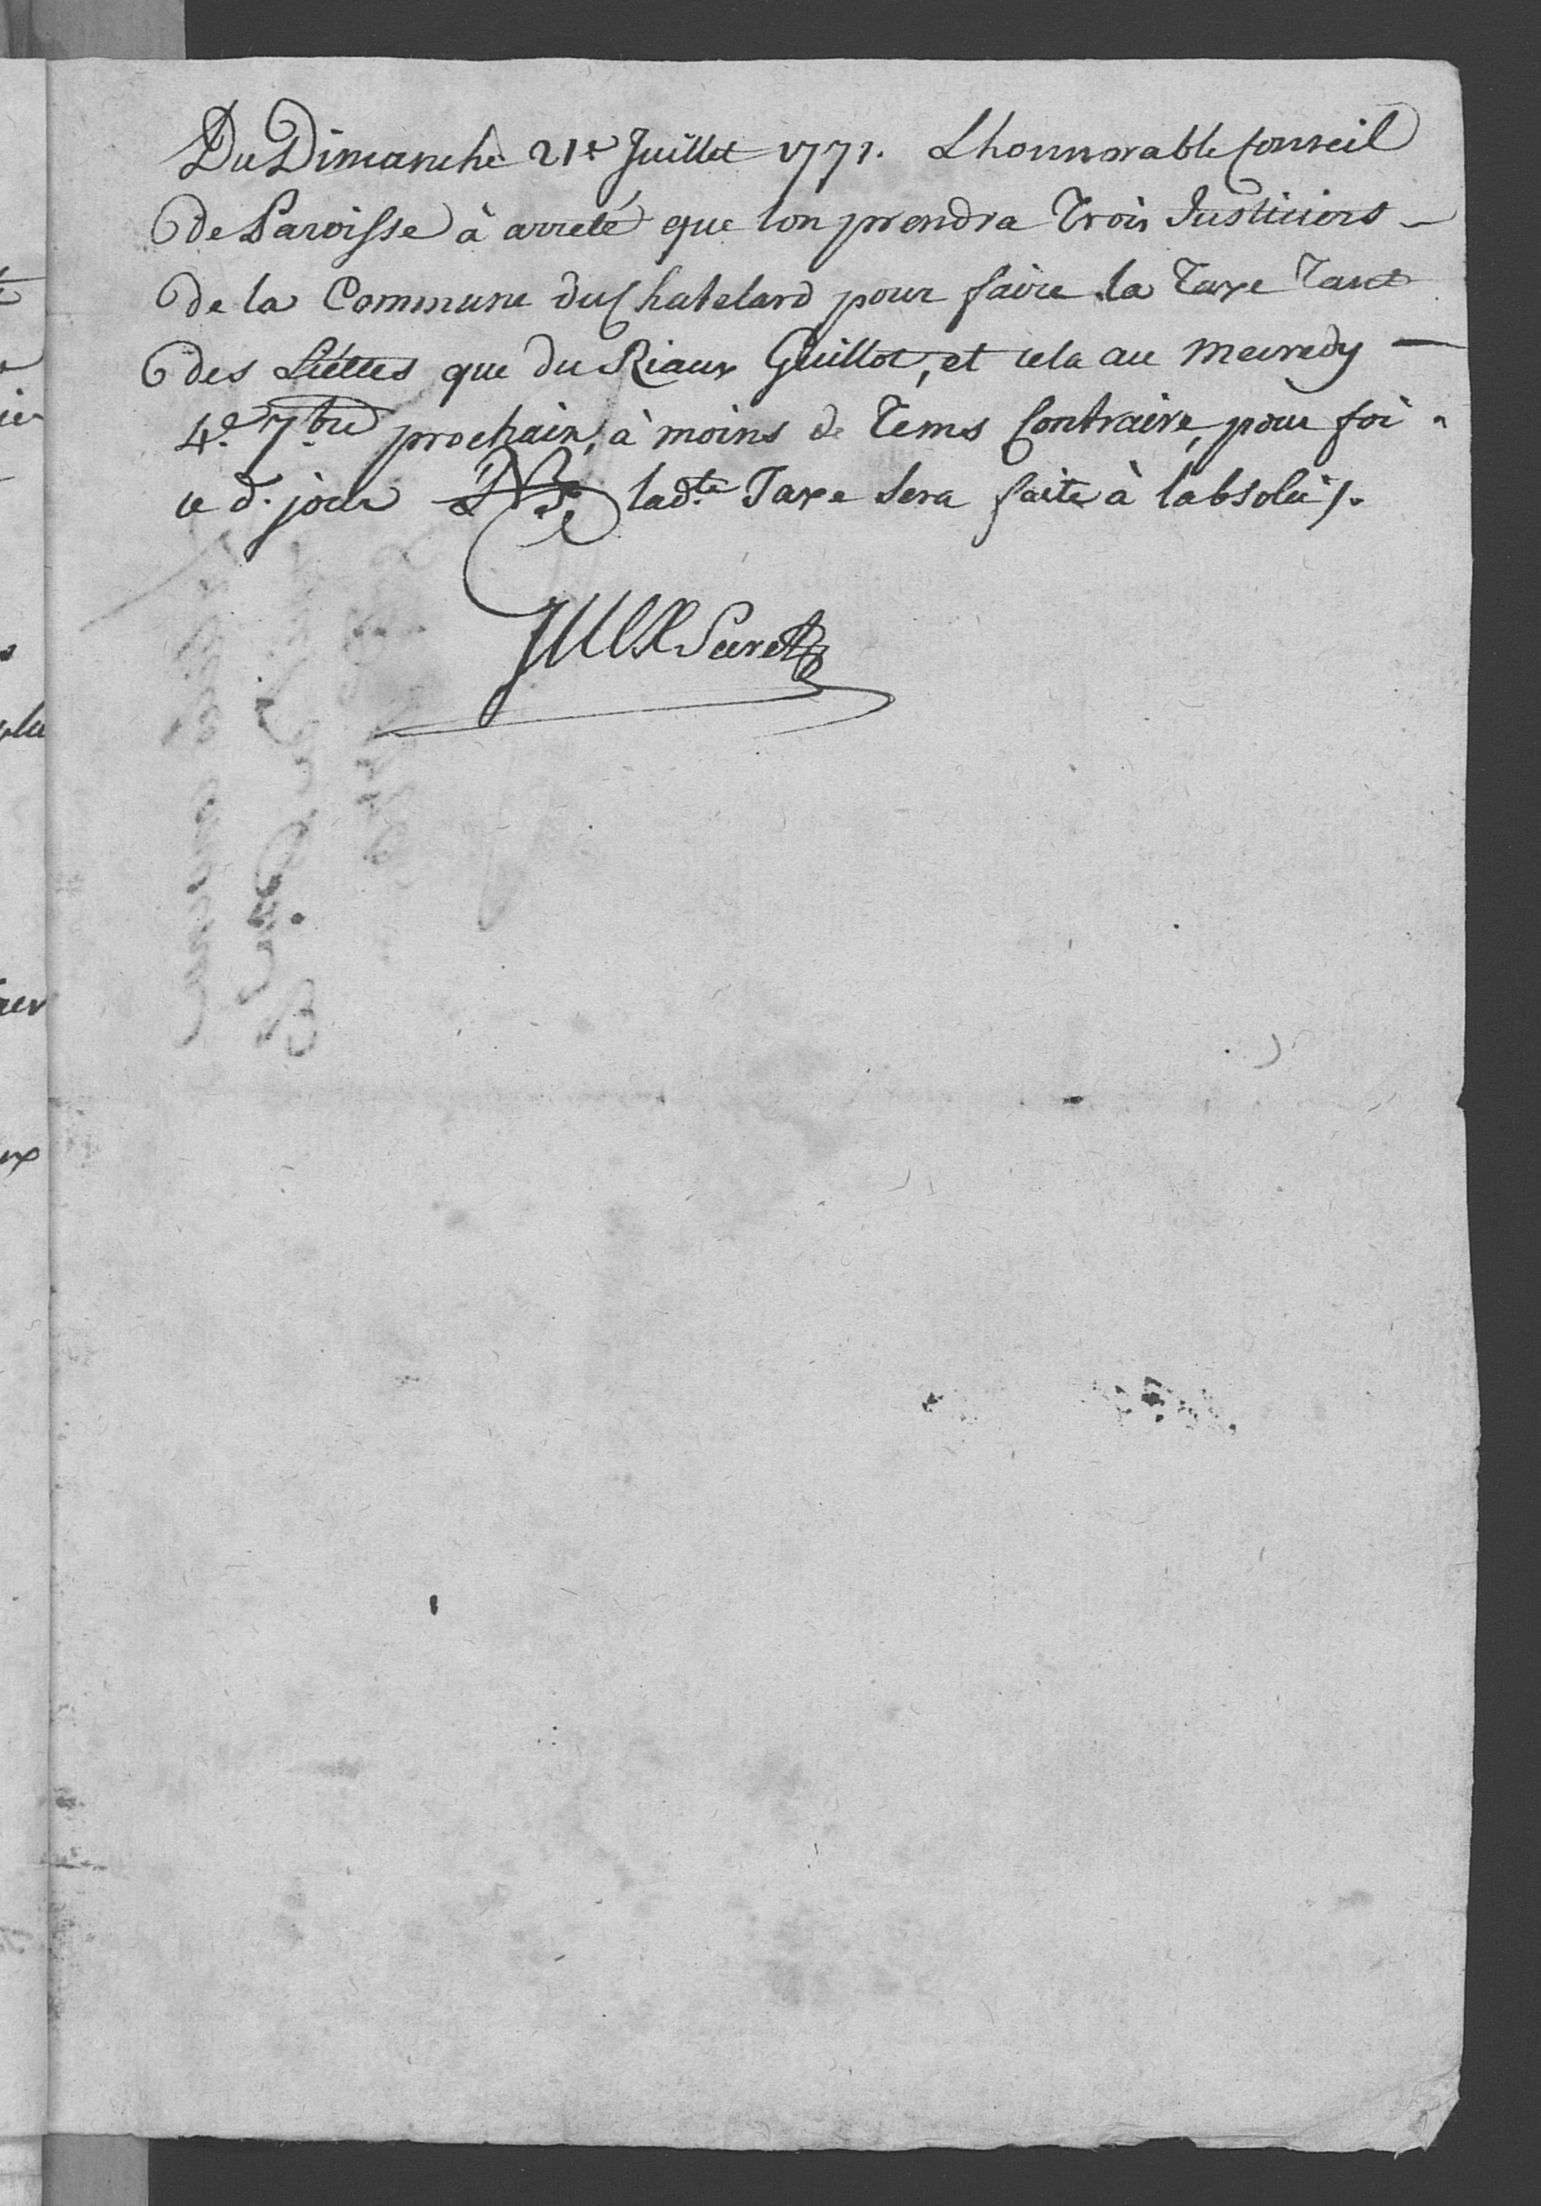 Du Dimanche 21e Juillet 1771. Lhonnorable Conseil
de Paroisse à arreté que lon prendra Trois Justiciers
de la Commune du Chatelard pour faire la Taxe Tant
des que du Riaux Guillot, et cela au Mecredy
4e. 7bre prochain, à moins de Tems Contraire, pour foi
ce d. jour NB. ladte Taxe Sera faite à labsolu